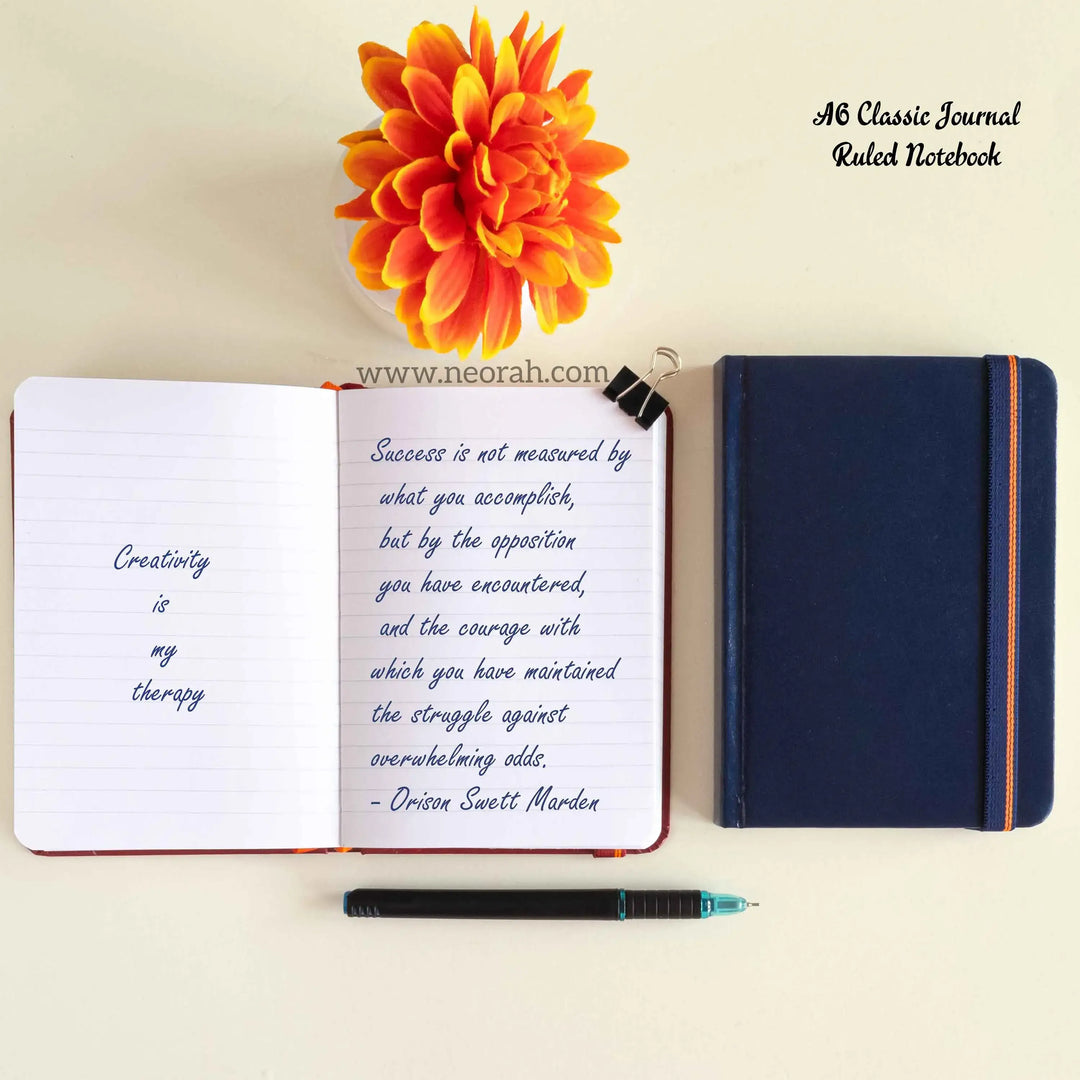 A6 Classic Journal
Ruled Notebook
www.neorah.com
Creativity
is
my
therapy
Success is not measured by
what you accomplish,
but by the opposition
you have encountered,
and the courage with
which you have maintained
the struggle against
overwhelming odds.
- Orison Swett Marden